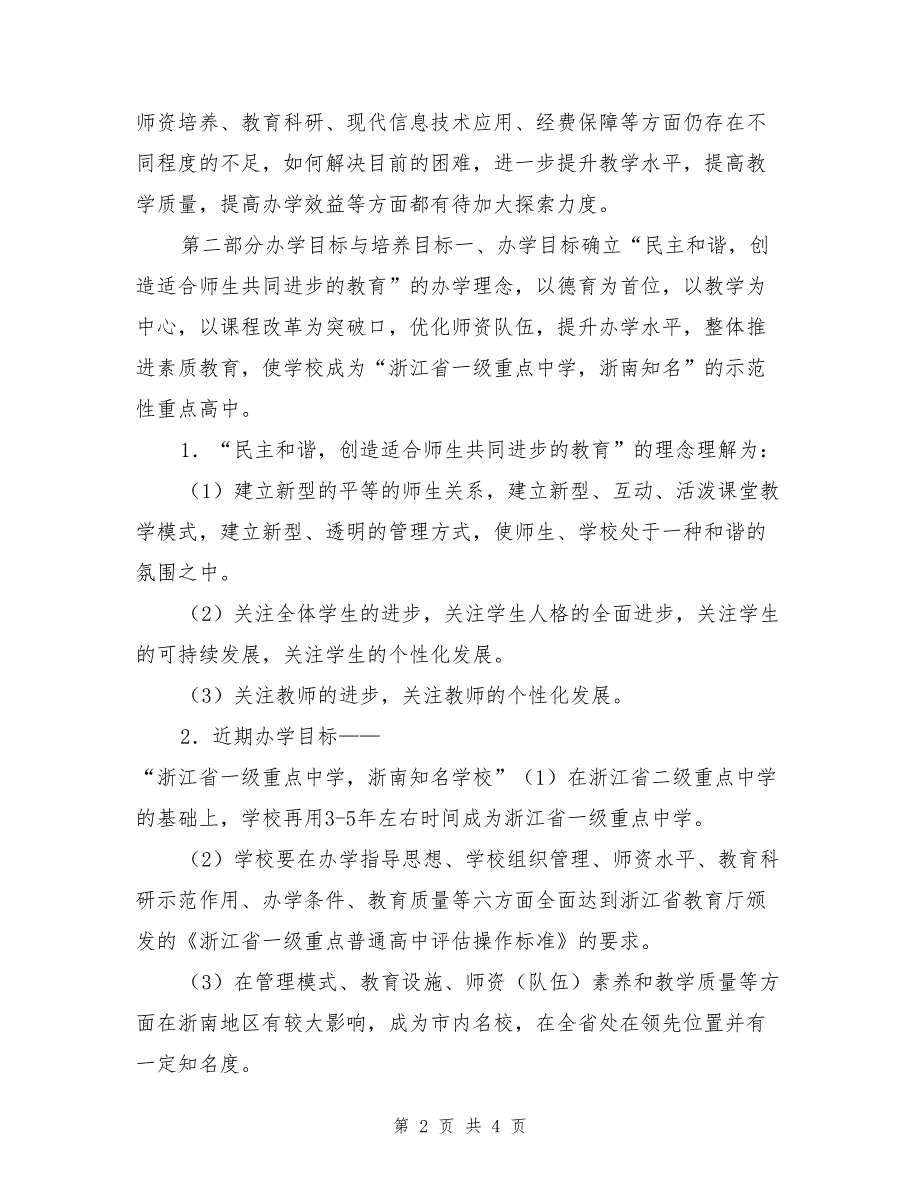 师资培养、教育科研、现代信息技术应用、经费保障等方面仍存在不
同程度的不足，如何解决目前的困难，进一步提升教学水平，提高教
学质量，提高办学效益等方面都有待加大探索力度。
第二部分办学目标与培养目标一、办学目标确立“民主和谐，创
造适合师生共同进步的教育”的办学理念，以德育为首位，以教学为
中心，以课程改革为突破口，优化师资队伍，提升办学水平，整体推
进素质教育，使学校成为“浙江省一级重点中学，浙南知名”的示范
性重点高中。
1．“民主和谐，创造适合师生共同进步的教育”的理念理解为：
（1）建立新型的平等的师生关系，建立新型、互动、活泼课堂教
学模式，建立新型、透明的管理方式，使师生、学校处于一种和谐的
氛围之中。
（2）关注全体学生的进步，关注学生人格的全面进步，关注学生
的可持续发展，关注学生的个性化发展。
（3）关注教师的进步，关注教师的个性化发展。
2．近期办学目标——
“浙江省一级重点中学，浙南知名学校”（1）在浙江省二级重点中学
的基础上，学校再用3-5年左右时间成为浙江省一级重点中学。
（2）学校要在办学指导思想、学校组织管理、师资水平、教育科
研示范作用、办学条件、教育质量等六方面全面达到浙江省教育厅颁
发的《浙江省一级重点普通高中评估操作标准》的要求。
（3）在管理模式、教育设施、师资（队伍）素养和教学质量等方
面在浙南地区有较大影响，成为市内名校，在全省处在领先位置并有
一定知名度。
第 2 页 共 4 页